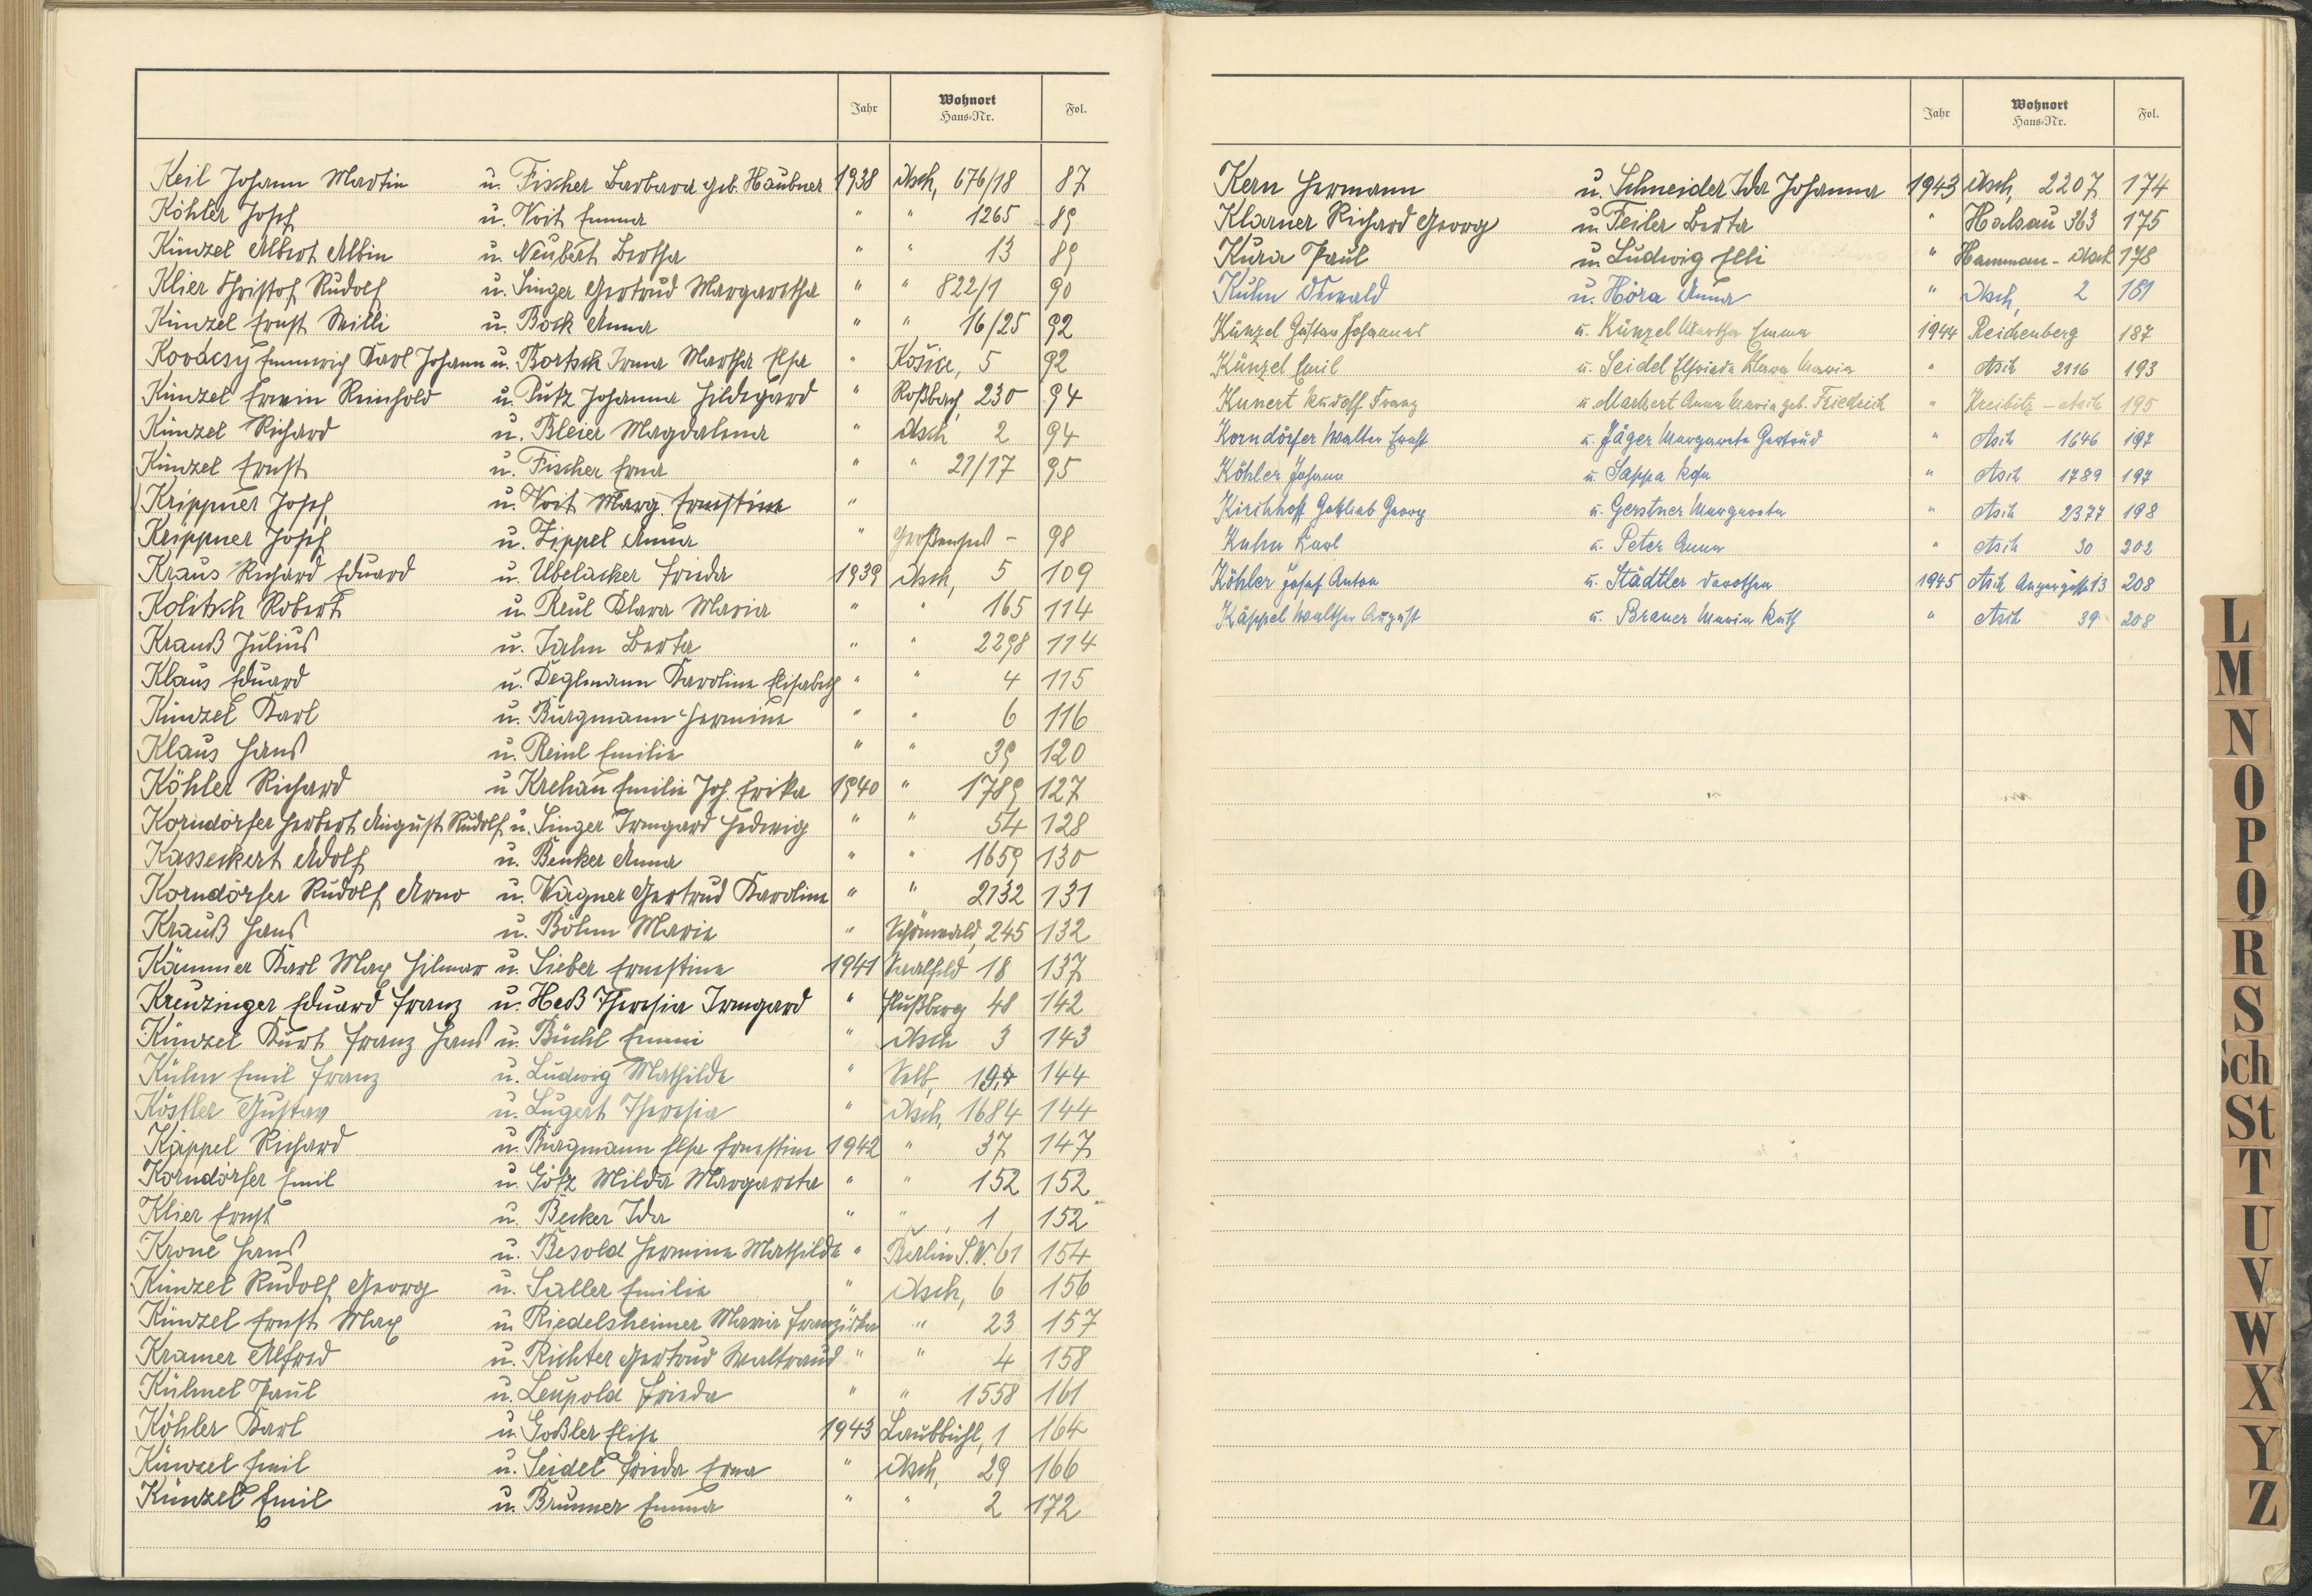 Jahr Wohnort Haus-Nr. Fol.
Keil Johann Martin u. Fischer Barbara geb. Haubner 1938 Asch, 676/18 87
Köhler Josef u. Voit Emma " " 1265 89
Künzel Albert Albin u. Neubert Bertha " " 13 89
Klier Christof Rudolf u. Singer Gertrud Margaretha " " 822/1 90
Künzel Ernst Willi u. Bock Anna " " 16/25 92
Kovácsy Emmerich Karl Johann u. Bartsch Irma Martha Elsa " Košice, 5 92
Künzel Erwin Reinhold u. Putz Johanna Hildegard " Roßbach, 230 94
Künzel Richard u. Bleier Magdalena " Asch 2 94
Künzel Ernst u. Fischer Erna " " 21/17 95
Krippner Josef u. Voit Marg. Ernestine "
Krippner Josef u. Zippel Anna " - 98
Kraus Richard Eduard u. Ubelacker Frieda 1939 Asch, 5 109
Kolitsch Robert u. Reul Klara Maria " " 165 114
Krauß Julius u. Jahn Berta " " 2298 114
Klaus Eduard u. Deglmann Karoline Elisabeth " " 4 115
Künzel Karl u. Burgmann Hermine " " 6 116
Klaus Hans u. Reinl Emilie " " 39 120
Köhler Richard u Krehan Emilie Joh. Erika 1940 " 1789 127
Korndörfer Herbert August Rudolf u. Singer Irmgard Hedwig " " 54 128
Kasseckert Adolf u. Benker Anna " " 1659 130
Korndörfer Rudolf Arno u. Wagner Gertrud Karoline " " 2132 131
Krauß Hans u. Böhm Marie " Schönwald, 245 132
Kämmer Karl Max Hilmar u. Sieber Ernestine 1941 Saalfeld 18 137
Kreuzinger Eduard Franz u. Heß Theresia Irmgard " Flußberg 48 142
Künzel Kurt Franz Hans u. Büchl Emmi " Asch 3 143
Kühn Emil Franz u. Ludwig Mathilde " Selb, 144
Kössler Gustav u. Lugert Theresia " Asch, 1684 144
Käppel Richard u. Burgmann Elsa Ernestine 1942 " 37 147
Korndörfer Emil u. Götz Milda Margareta " " 152 152
Klier Ernst u. Becker Ida " " 1 152
Krone Hans u. Besold Hermine Mathilde " Berlin S.W. 61 154
Künzel Rudolf Georg u. Saller Emilie " Asch, 6 156
Künzel Ernst Max u. Riedelsheimer Maria Franziska " 23 157
Kramer Alfred u. Richter Gertrud Waltraud " " 4 158
Kühnel Paul u. Leupold Frieda " " 1558 161
Köhler Karl u. Goßler Elise 1943 Laubbühl, 1 164
Künzel Emil u. Seidel Frieda Erna " Asch, 29 166
Künzel Emil u. Brunner Emma " " 2 172
Jahr Wohnort Haus-Nr. Fol.
Kern Hermann u. Schneider Ida Johanna 1943 Asch, 2207 174
Klarner Richard Georg u. Feiler Berta " Halsau 363 175
Kura Paul u. Ludwig Elli " - Asch 178
Kühn Oswald u. Höra Anna " Asch, 2 181
Künzel Gustav Johannes u. Künzel Martha Emma 1944 Reichenberg 187
Künzel Emil u. Seidel Elfriede Klara Maria " Asch 2116 193
Kunert Rudolf Franz u. Markert Anna Maria geb. Friedrich " Kreibitz - Asch 195
Korndörfer Walter Ernst u. Jäger Margarete Gertrud " Asch 1646 197
Köhler Johann u. Sappa " Asch 1789 197
Kirchhoff Gottlieb Georg u. Gerstner Margareta " Asch 2377 198
Kuhn Karl u. Peter Anna " Asch 30 202
Köhler Josef Anton u. Städtler Dorothea 1945 Asch Angergasse 13 208
Käppel Walther August u. Brauer Maria Ruth " Asch 39 208
L
M
N
O
P
Q
R
S
Sch
St
T
U
V
W
X
Y
Z